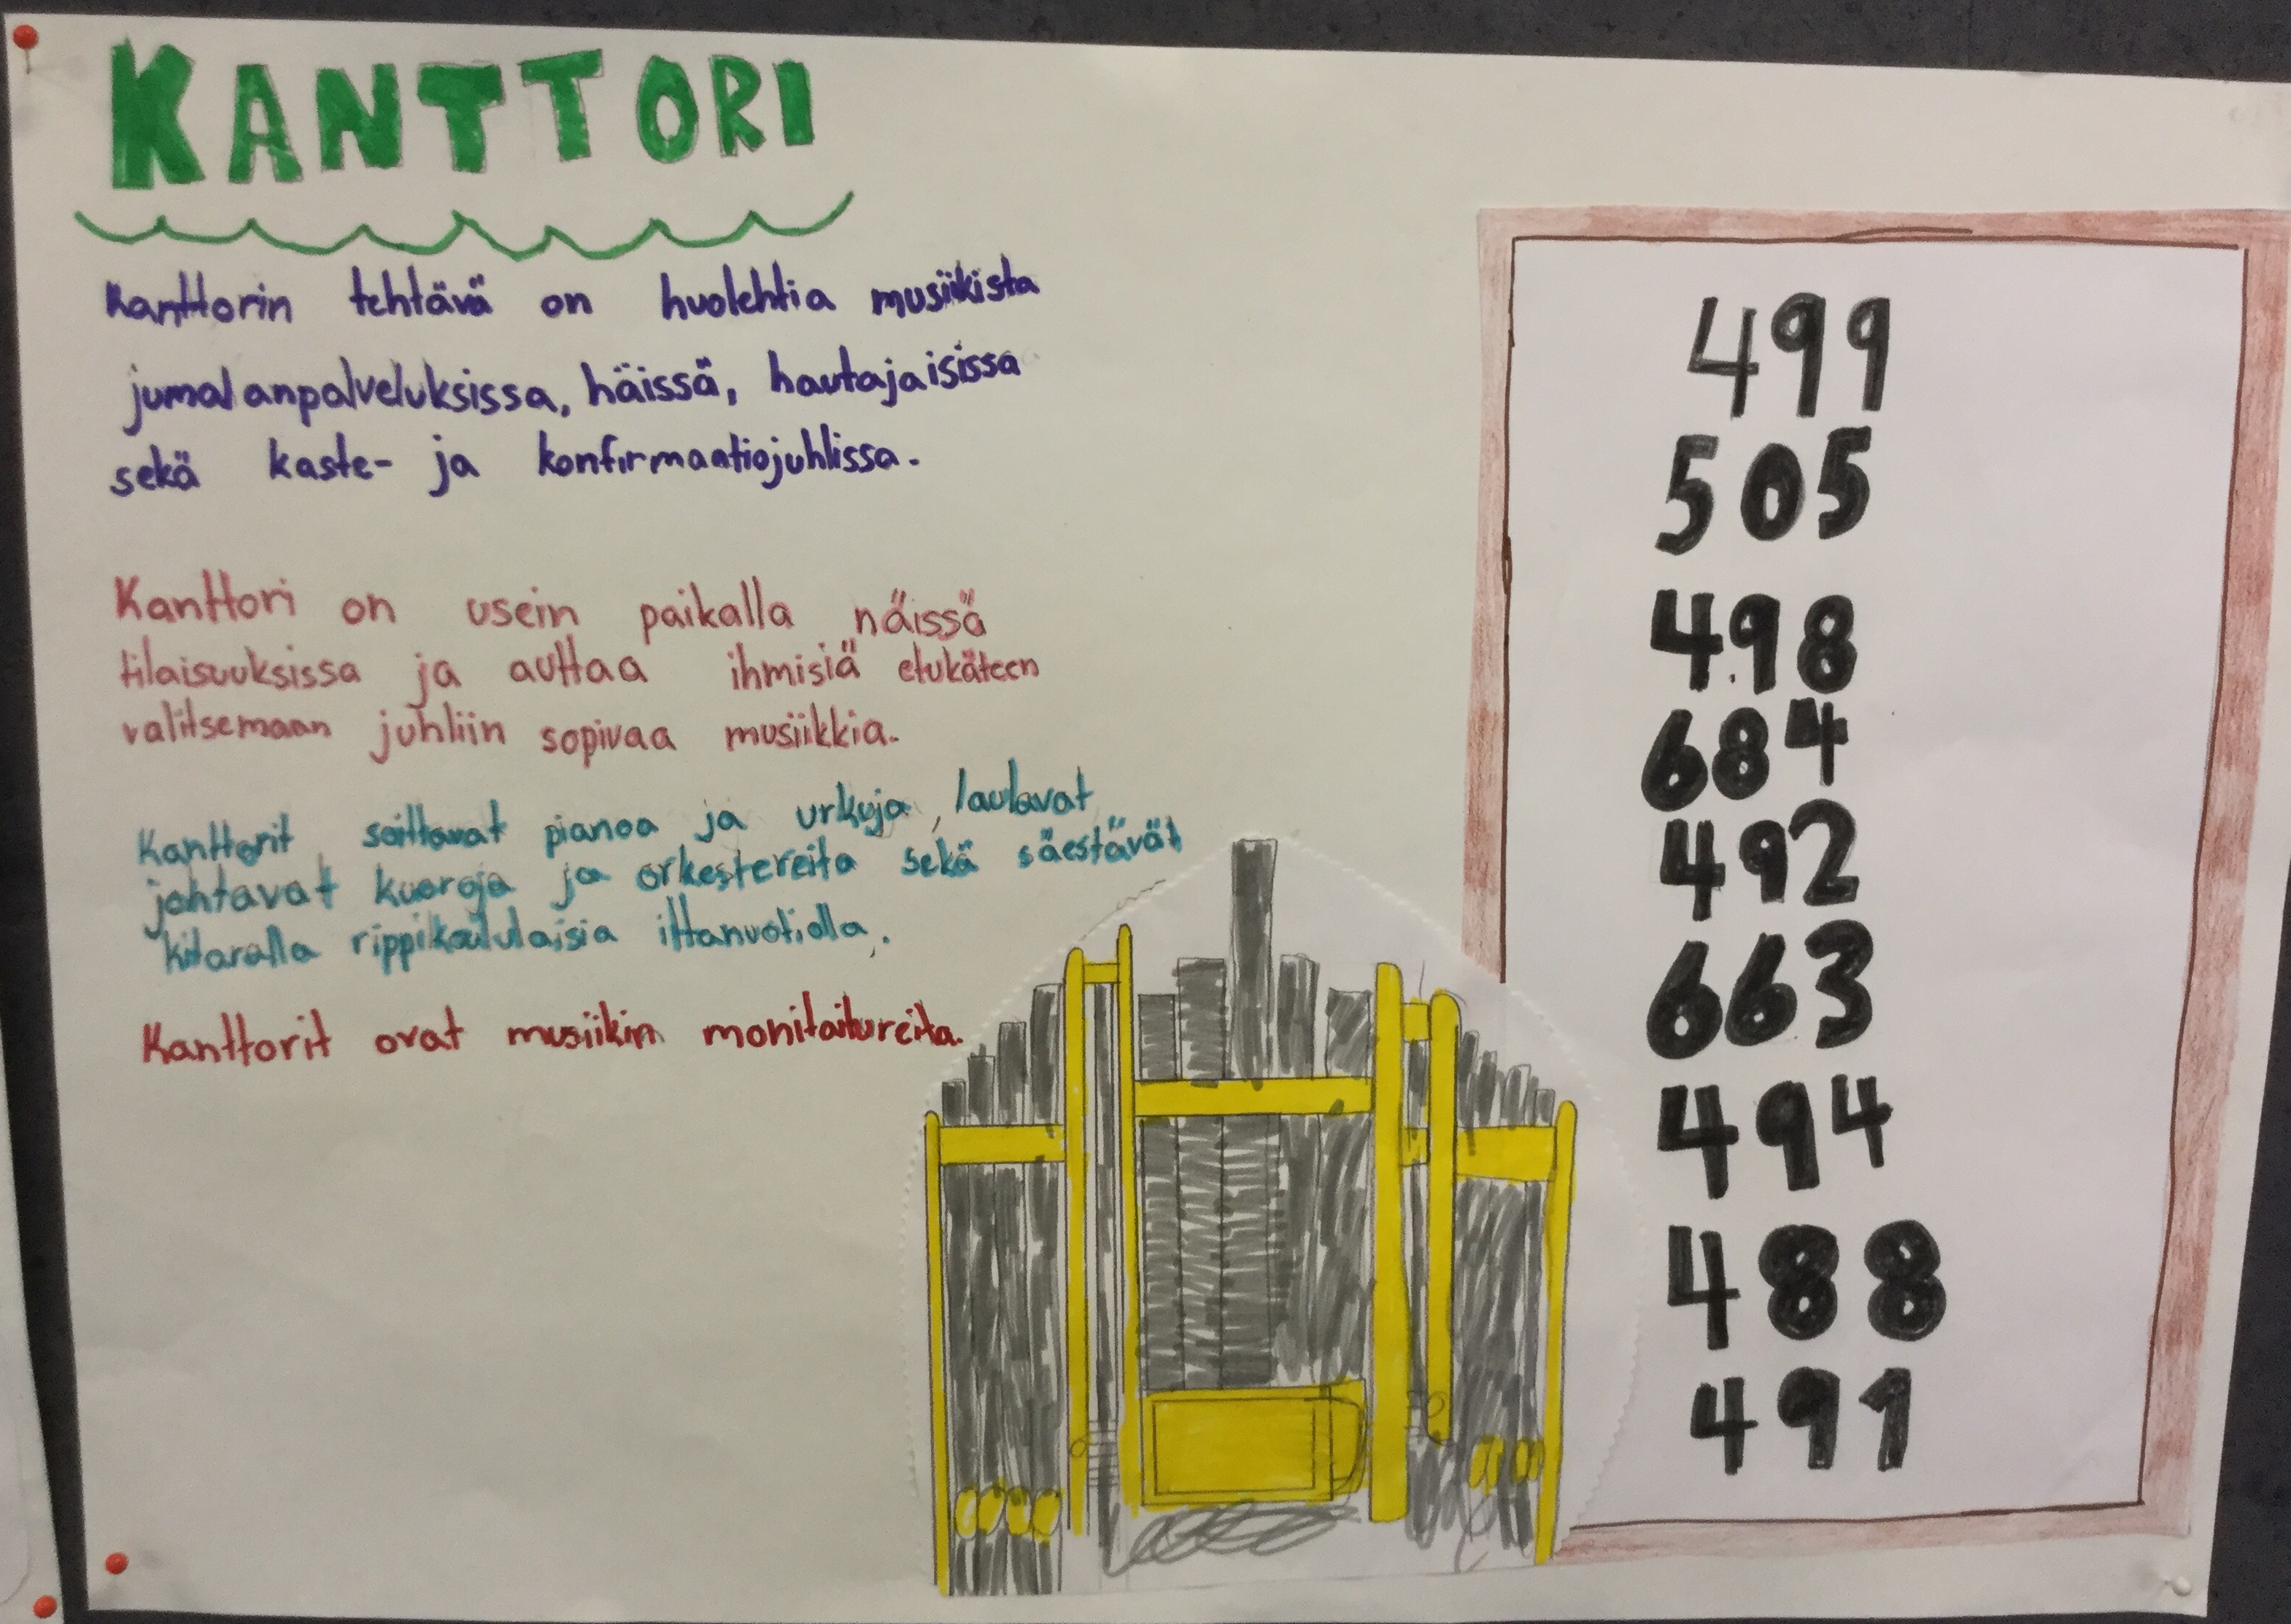 KANTTORI
Kanttorin tehtävä on huolehtia musiikista
jumalanpalveluksissa, häissä, hautajaisissa
sekä kaste- ja konfirmaatiojuhlissa.
Kanttori on usein paikalla näissä
tilaisuuksissa ja auttaa ihmisiä etukäteen
valitsemaan juhliin sopivaa musiikkia.
Kanttorit soittavat pianoa ja urkuja, laulavat
johtavat kuoroja ja orkestereita sekä säestävät
kitaralla rippikoululaisia iltanuotiolla.
Kanttorit ovat musiikin monitaitureita.
499
505
498
684
492
663
494
488
491